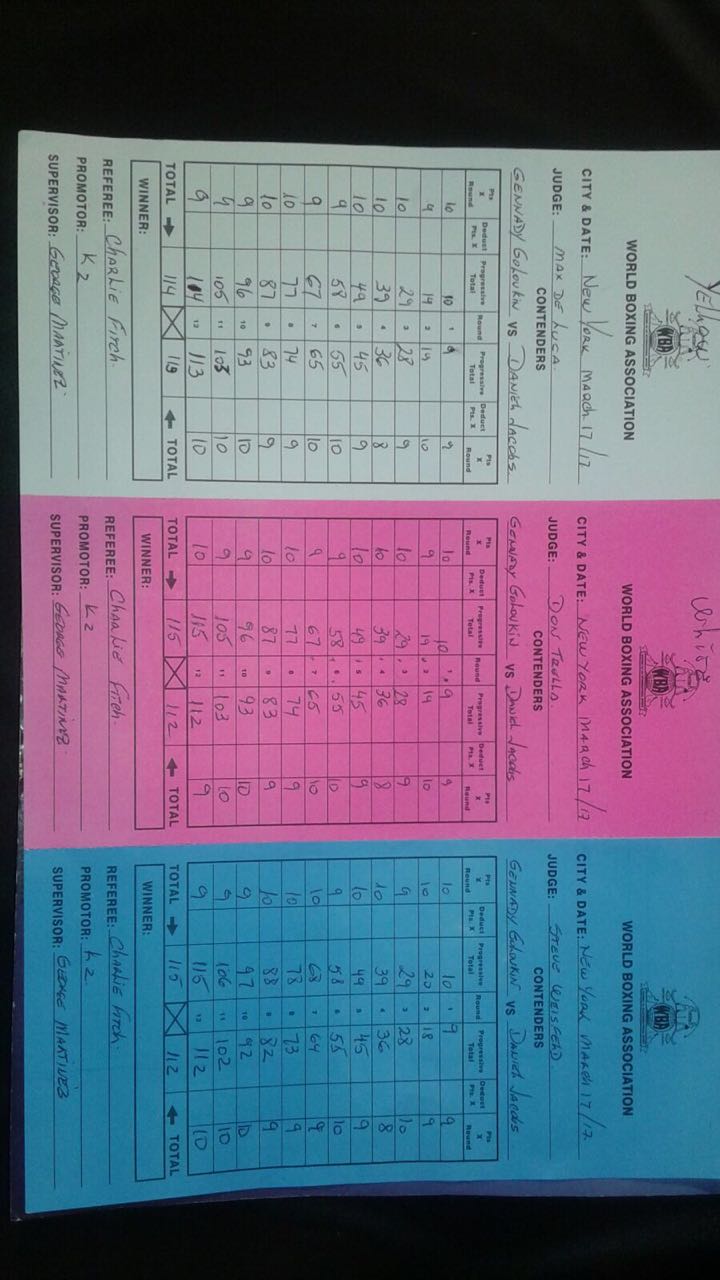 Yellow
WBA
WORLD BOXING ASSOCIATION
CITY & DATE: NEW YORK MARCH 17/17
JUDGE: MAX DE LUCA
CONTENDERS
GENNADY GOLOVKIN VS DANIEL JACOBS
Pts X Round Deduct Pts. X Progressive Total Round Progressive Total Deduct Pts. X Pts X Round
10 10 1 9 9
9 19 2 19 10
10 29 3 28 9
10 39 4 36 8
10 49 5 45 9
9 58 6 55 10
9 67 7 65 10
10 77 8 74 9
10 87 9 83 9
9 96 10 93 10
9 105 11 103 10
9 114 12 113 10
TOTAL → 114 113 ← TOTAL
WINNER:
REFEREE: CHARLIE FITCH.
PROMOTOR: K2
SUPERVISOR: GEORGE MARTINEZ
White
WBA
WORLD BOXING ASSOCIATION
CITY & DATE: NEW YORK MARCH 17/17
JUDGE: DON TRELLA
CONTENDERS
GENNADY GOLOVKIN VS DANIEL JACOBS
Pts X Round Deduct Pts. X Progressive Total Round Progressive Total Deduct Pts. X Pts X Round
10 10 1 9 9
9 19 2 19 10
10 29 3 28 9
10 39 4 36 8
10 49 5 45 9
9 58 6 55 10
9 67 7 65 10
10 77 8 74 9
10 87 9 83 9
9 96 10 93 10
9 105 11 103 10
10 115 12 112 9
TOTAL → 115 112 ← TOTAL
WINNER:
REFEREE: CHARLIE FITCH.
PROMOTOR: K2
SUPERVISOR: GEORGE MARTINEZ
WBA
WORLD BOXING ASSOCIATION
CITY & DATE: NEW YORK MARCH 17/17.
JUDGE: STEVE WEISFELD
CONTENDERS
GENNADY GOLOVKIN VS DANIEL JACOBS
Pts X Round Deduct Pts. X Progressive Total Round Progressive Total Deduct Pts. X Pts X Round
10 10 1 9 9
10 20 2 18 9
9 29 3 28 10
10 39 4 36 8
10 49 5 45 9
9 58 6 55 10
10 68 7 64 9
10 78 8 73 9
10 88 9 82 9
9 97 10 92 10
9 106 11 102 10
9 115 12 112 10
TOTAL → 115 112 ← TOTAL
WINNER:
REFEREE: CHARLIE FITCH.
PROMOTOR: K2.
SUPERVISOR: GEORGE MARTINEZ